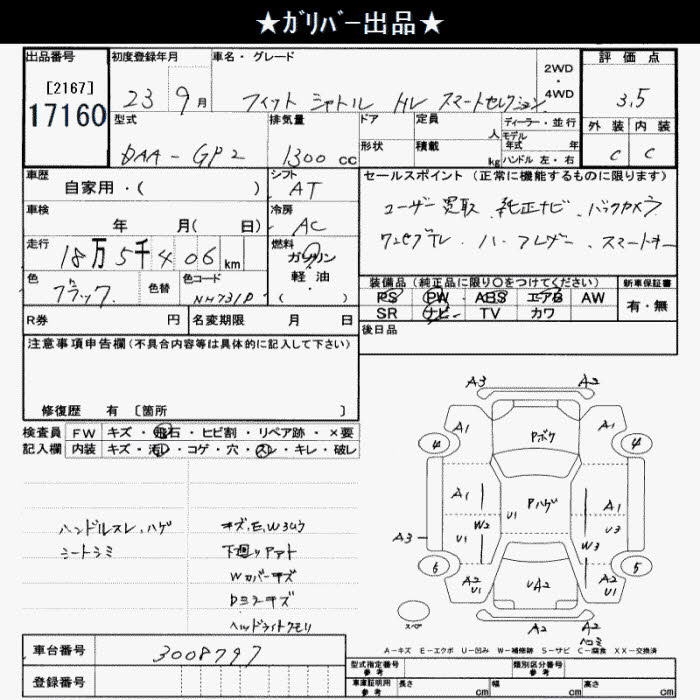 ★ｶﾞﾘﾊﾞｰ出品★
出品番号
[2167]
17160
初度登録年月
23 9月
車名・グレード
フィット シャトル HV スマートセレクション
2WD
・
4WD
評価点
3.5
外装 内装
C C
型式
DAA-GP2
排気量
1300 cc
ドア
形状
定員
人
積載
kg
ディーラー・並行
モデル
年式 年
ハンドル 左・右
車歴
自家用・( )
シフト
AT
車検
年 月( 日)
冷房
AC
走行
18万5千406km
燃料
ガソリン
軽・油
( )
色
ブラック
色替
色コード
NH731P
R券 円
名変期限 月 日
セールスポイント (正常に機能するものに限ります)
ユーザー買取、純正ナビ、バックカメラ
ワンセグTV、ハーフレザー、スマートキー
装備品(純正品に限り○をつけてください)
PS PW ABS エアB AW
SR ナビ TV カワ
新車保証書
有・無
後日品
注意事項申告欄(不具合内容等は具体的に記入して下さい)
修復歴 有 〔箇所 〕
検査員
記入欄
FW キズ・飛石・ヒビ割・リペア跡・×要
内装 キズ・汚レ・コゲ・穴・スレ・キレ・破レ
ハンドルスレ、ハゲ
シートシミ
キズ、E、W 3ケワ
下廻リサビ
Wカバーキズ
Dミラーキズ
ヘッドライトクモリ
A3 A2
A1 A1
4 Pボケ 4
A1 Pハゲ A1
U1 W2 U1 U3
A3 W3
6 5
A2 U1 UA2 A2 U1
スペア
A2 A2
ヘコミ
A-キズ E-エクボ U-凹み W-補修跡 S-サビ C-腐食 XX-交換済
車台番号
3008797
登録番号
型式指定番号
参考
類別区分番号
参考
車庫証明用
参考
長さ cm
幅 cm
高さ cm